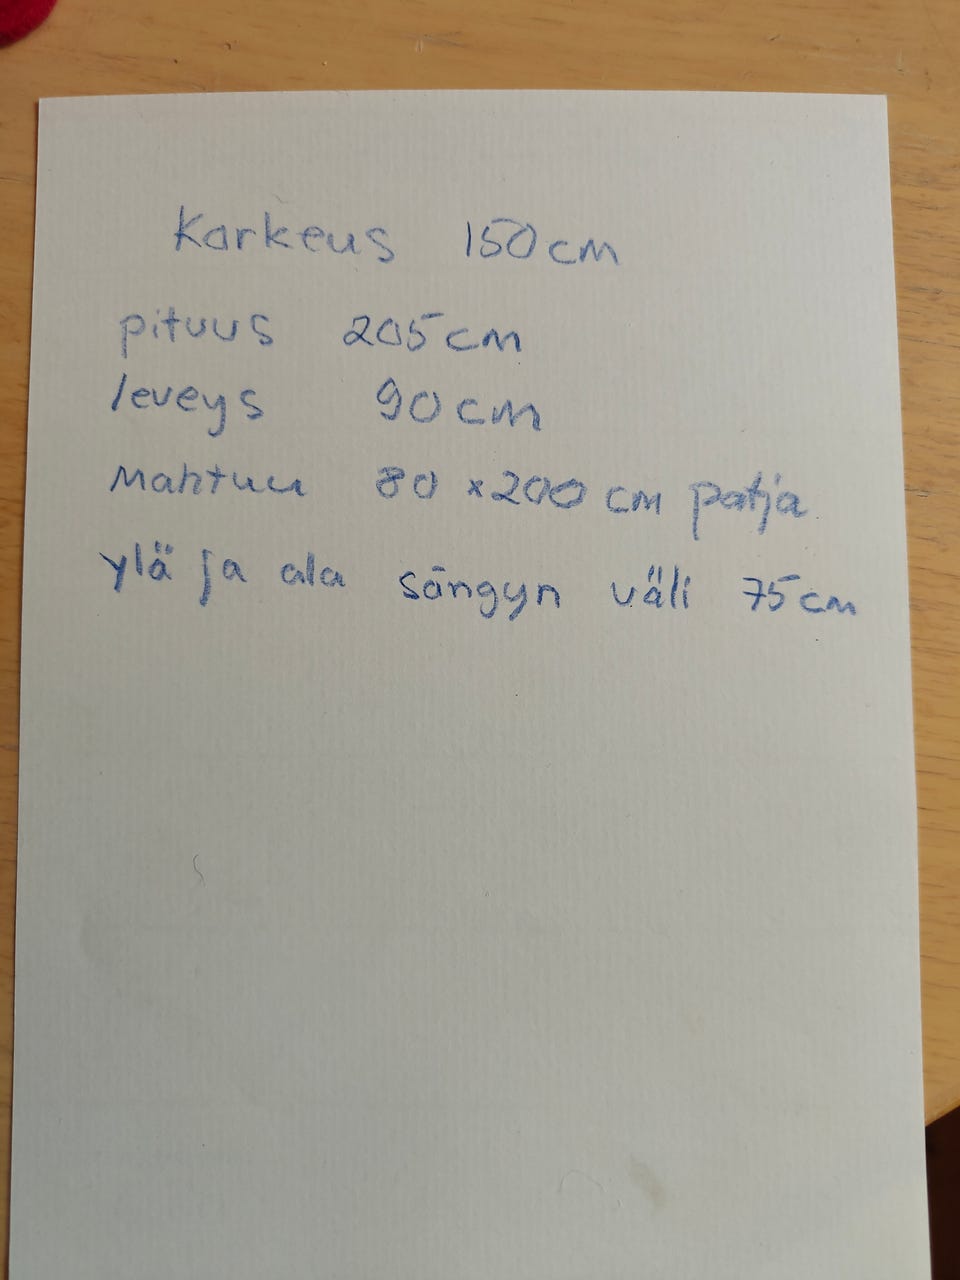 Karkeus 150 cm
pituus 205 cm
leveys 90 cm
Mahtuu 80 x 200 cm patja
ylä ja ala sängyn väli 75 cm